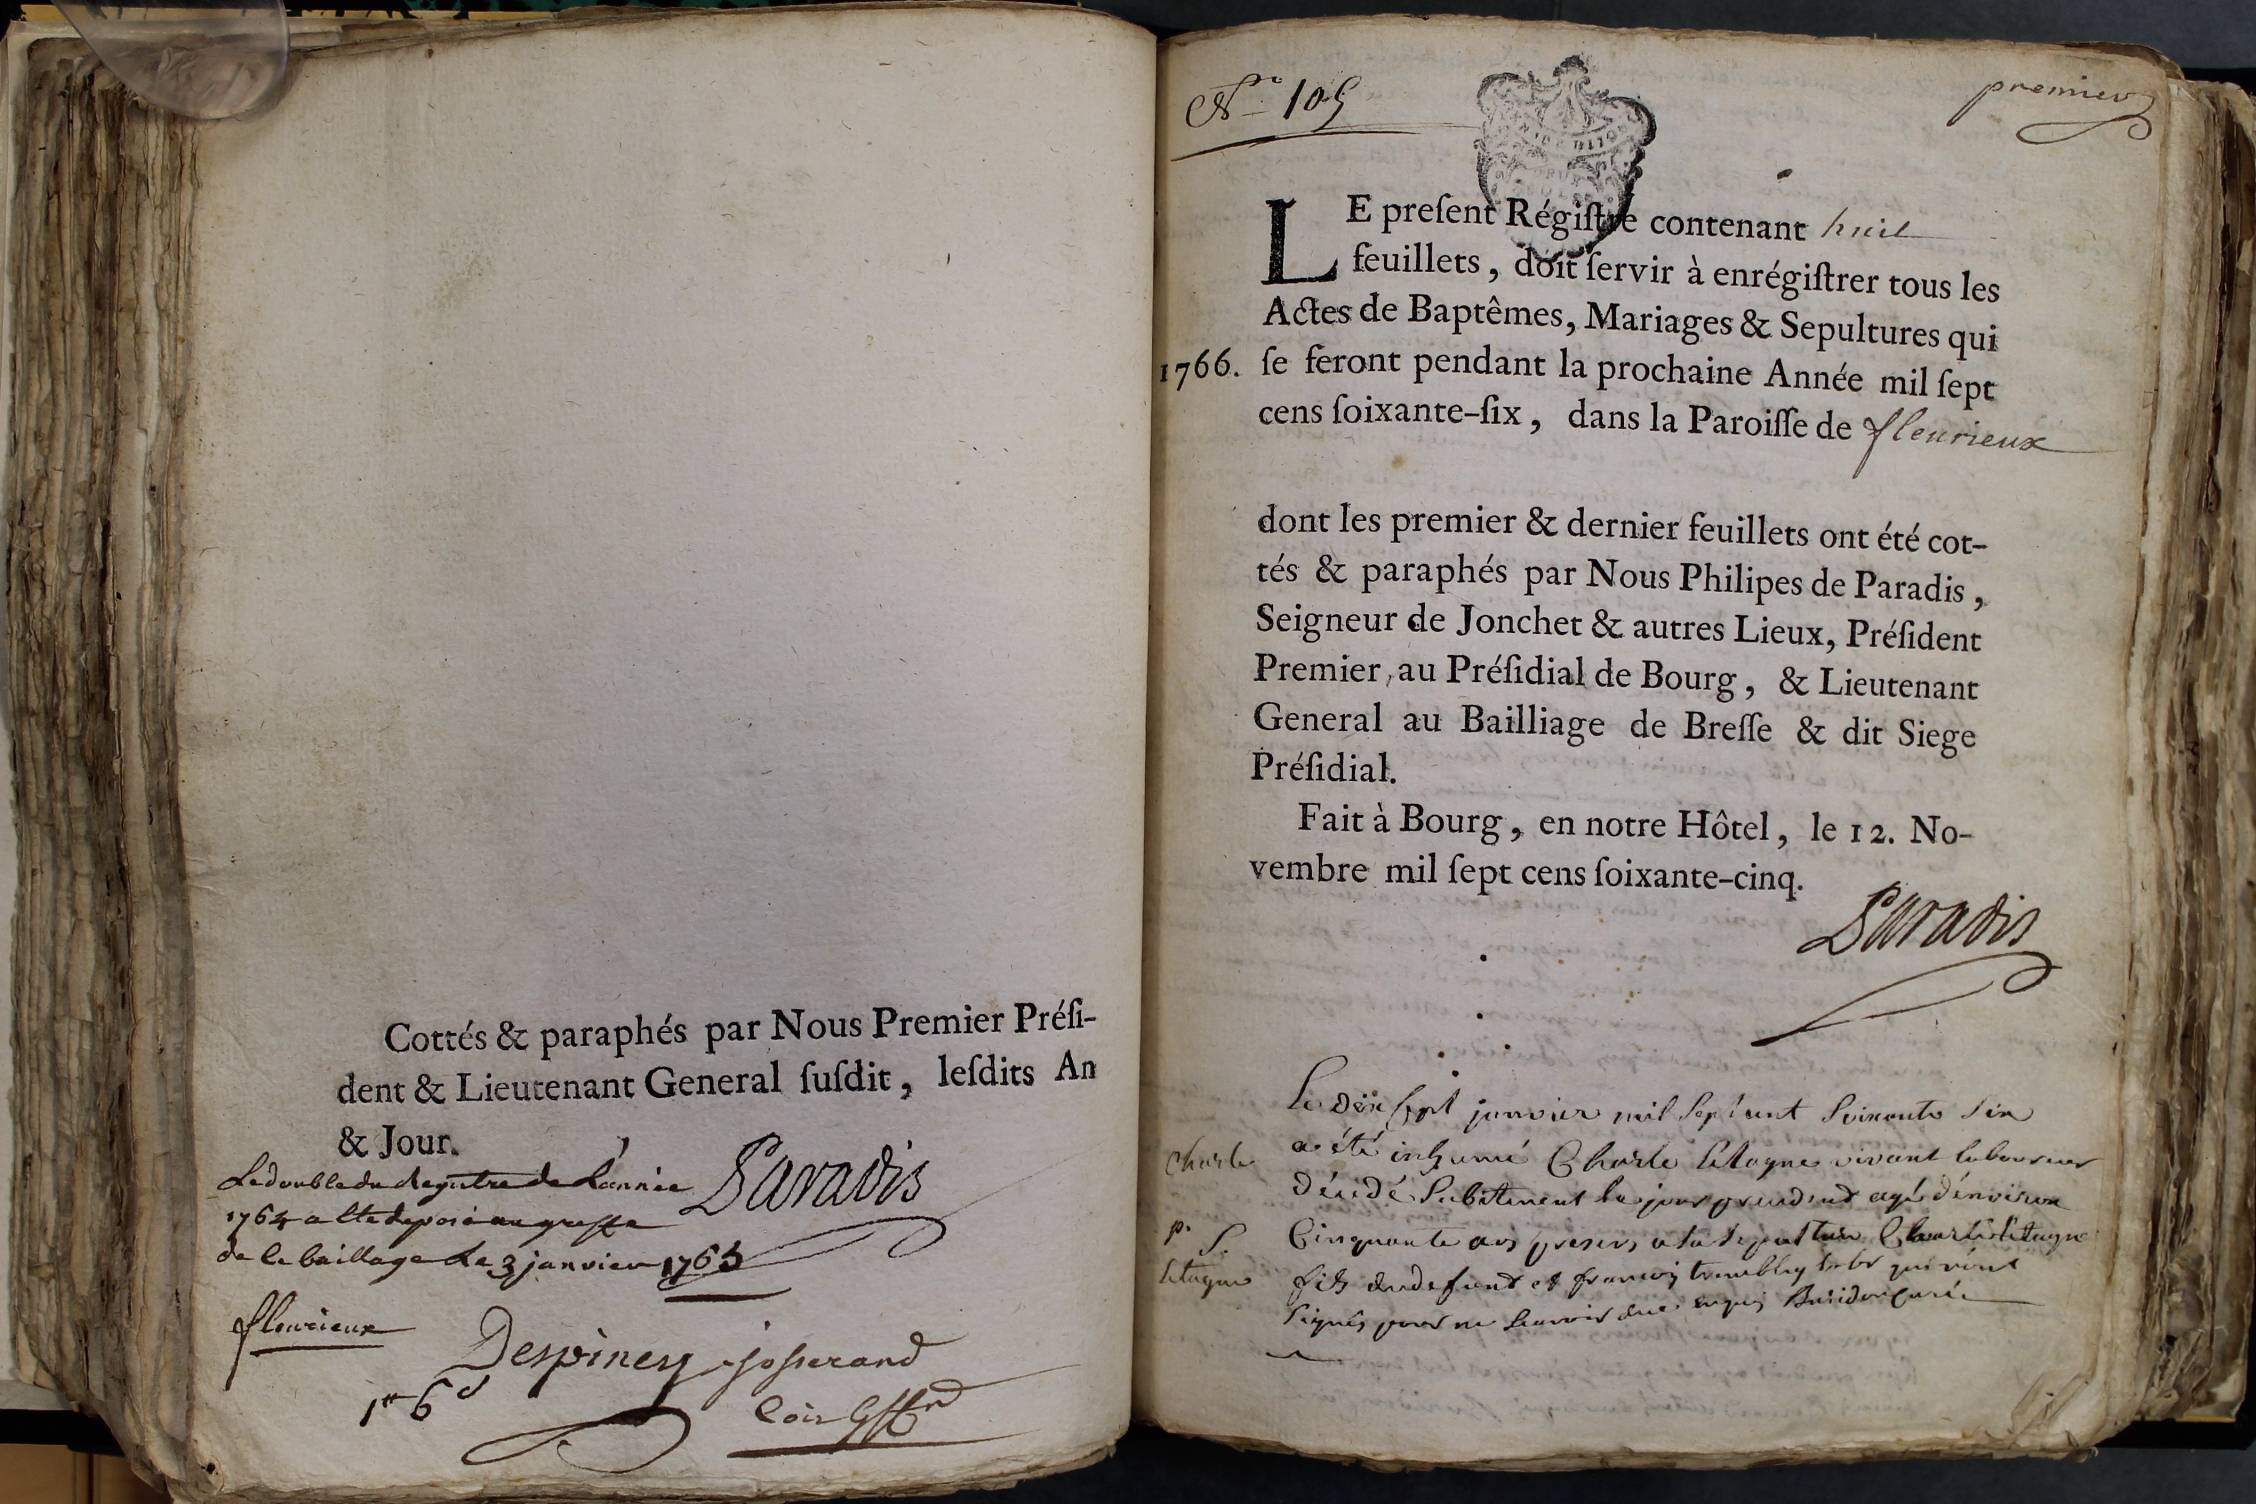 Cottés & paraphés par Nous Premier Préſi-
dent & Lieutenant General ſuſdit, leſdits An
& Jour.
Paradis
Le double du Registre de L'année
1764 a ete deposé au greffe
de ce bailliage le 3 janvier 1765
fleurieux
Despiney josserand
Coir Greff
N.o 105
premier
LE preſent Régiſtre contenant huit
feuillets, doit ſervir à enrégiſtrer tous les
Actes de Baptêmes, Mariages & Sepultures qui
1766. ſe feront pendant la prochaine Année mil ſept
cens ſoixante-ſix, dans la Paroiſſe de fleurieux
dont les premier & dernier feuillets ont été cot-
tés & paraphés par Nous Philipes de Paradis,
Seigneur de Jonchet & autres Lieux, Préſident
Premier au Préſidial de Bourg, & Lieutenant
General au Bailliage de Breſſe & dit Siege
Préſidial.
Fait à Bourg, en notre Hôtel, le 12. No-
vembre mil ſept cens ſoixante-cinq.
Paradis
Le dix sept janvier mil sept cent soixante six
Charle
a été inhumé Charle Létagne vivant laboureur
décédé subitement le jour precedent agé d'environ
p. S.
Cinquante ans presens a la sepulture Charle Létagne
Létagne
fils du defunt et françois tremblay qui n'ont
signés pour ne scavoir de ce enquis curé